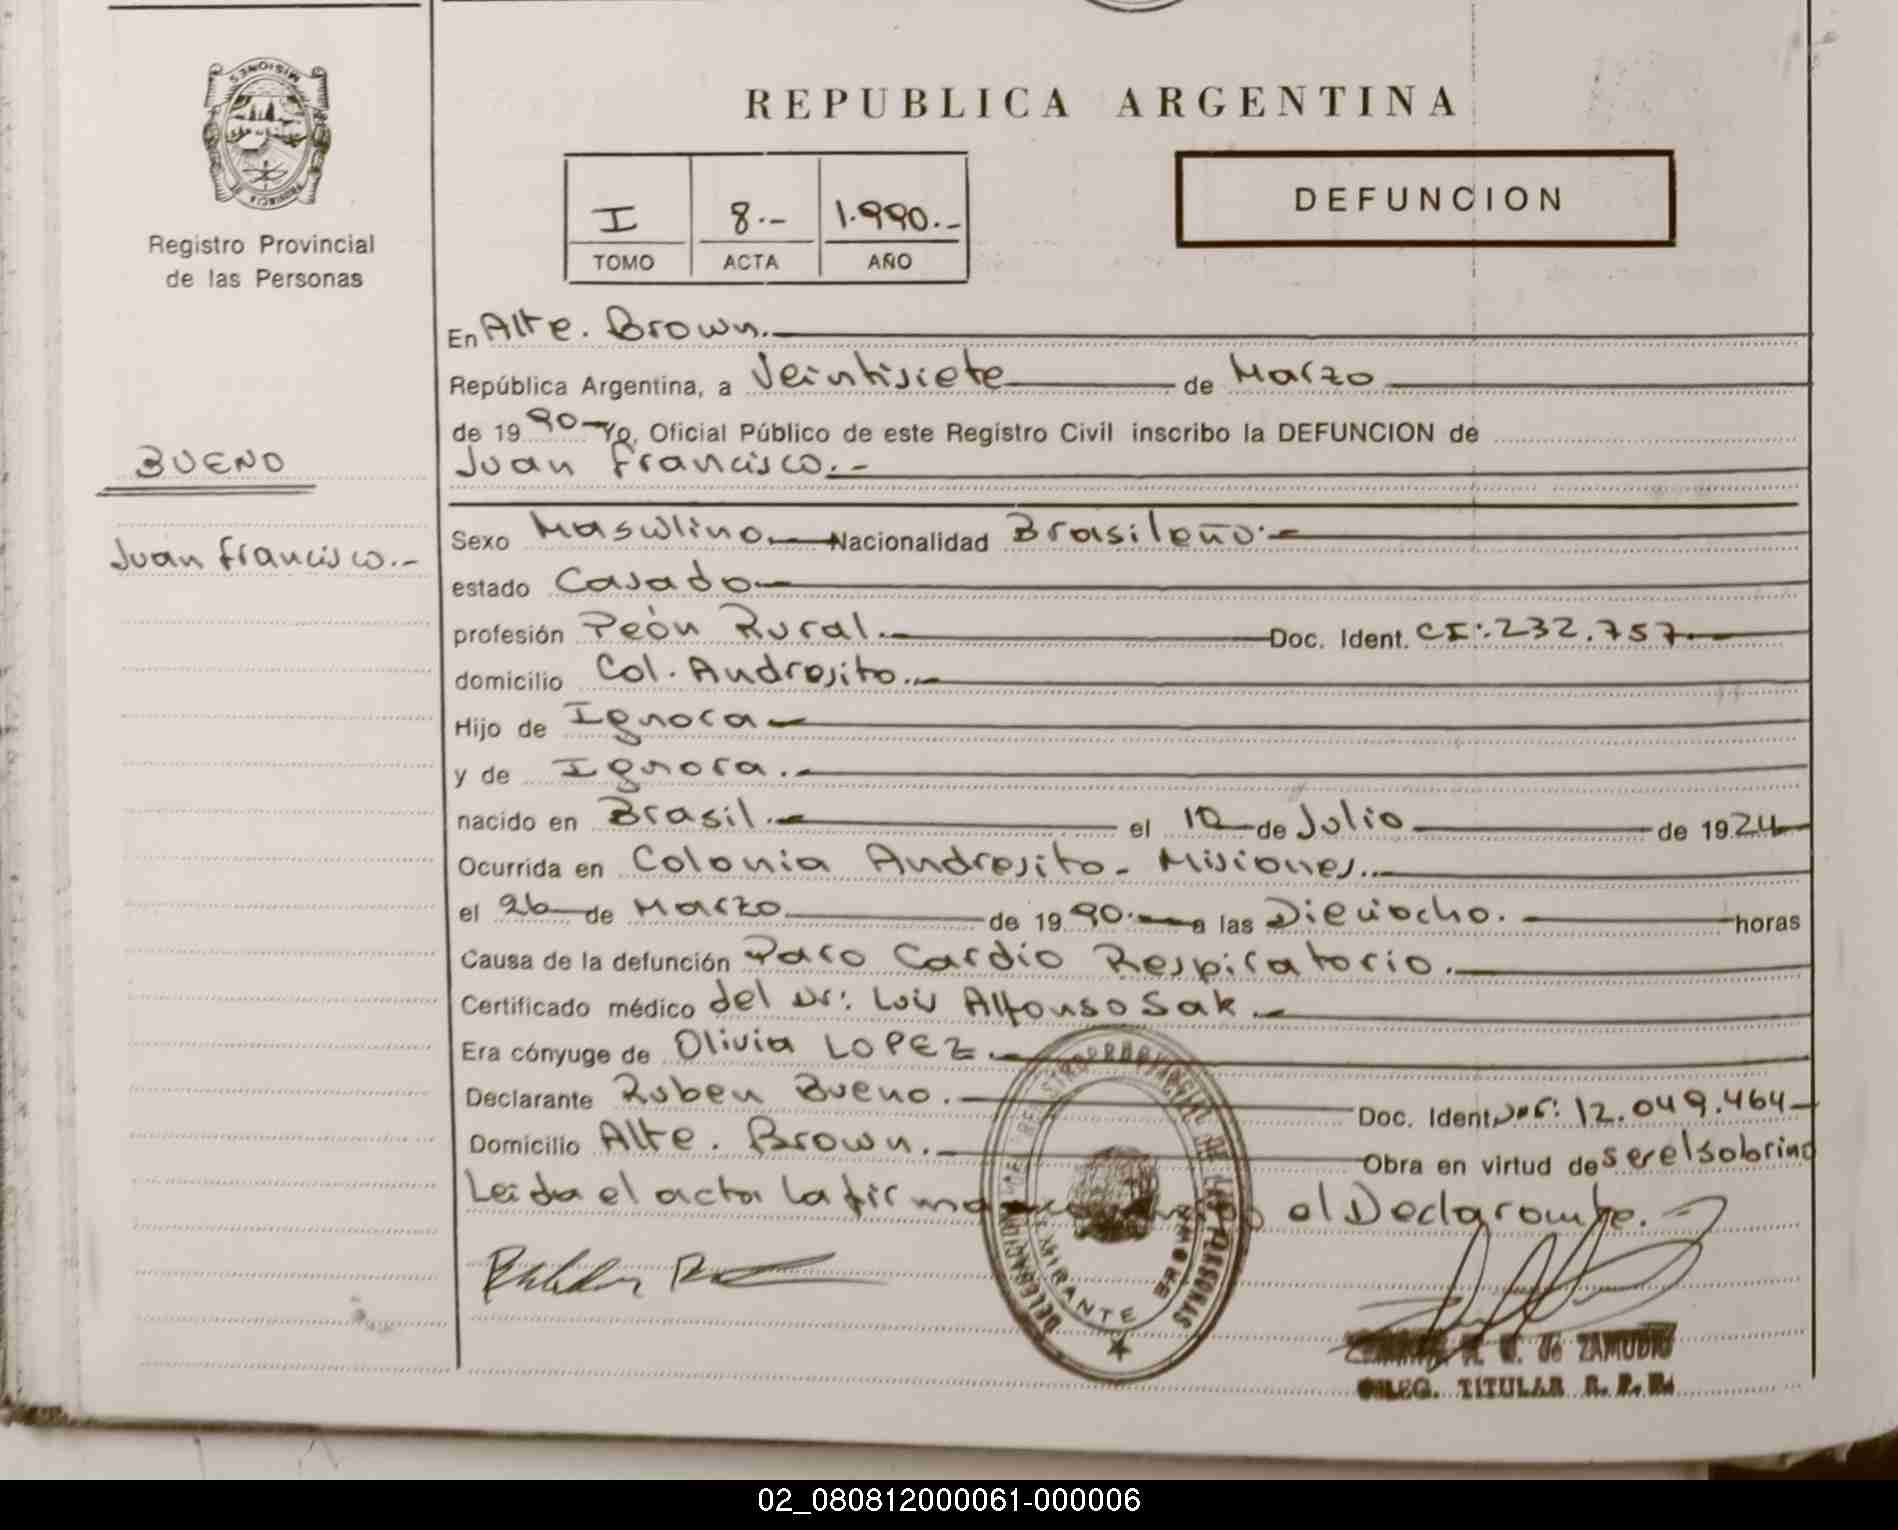 MISIONES
PROVINCIA DE
Registro Provincial
de las Personas
BUENO
Juan Francisco.-
REPUBLICA ARGENTINA
I 8.- 1.990.-
TOMO ACTA AÑO
DEFUNCION
En Alte. Brown.
República Argentina, a Veintisiete de Marzo
de 19 90 Yo, Oficial Público de este Registro Civil inscribo la DEFUNCION de
Juan Francisco.-
Sexo Masculino.- Nacionalidad Brasileño.-
estado Casado
profesión Peón Rural. Doc. Ident. CI: 232.757
domicilio Col. Andresito.-
Hijo de Ignora
y de Ignora.
nacido en Brasil.- el 10 de Julio de 19 24
Ocurrida en Colonia Andresito - Misiones.-
el 26 de Marzo de 19 90.- a las Dieciocho. horas
Causa de la defunción Paro Cardio Respiratorio.
Certificado médico del Dr: Luis Alfonso Sak.-
Era cónyuge de Olivia LOPEZ.-
Declarante Ruben Bueno. Doc. Ident 12.049.464
Domicilio Alte. Brown. Obra en virtud de ser el sobrino
Leida el acta la firma el Declarante.
REGISTRO PROVINCIAL DE LAS PERSONAS
DELEGACION
ALMIRANTE BROWN
de ZAMUDIO
DELEG. TITULAR R. P. P.
02_080812000061-000006